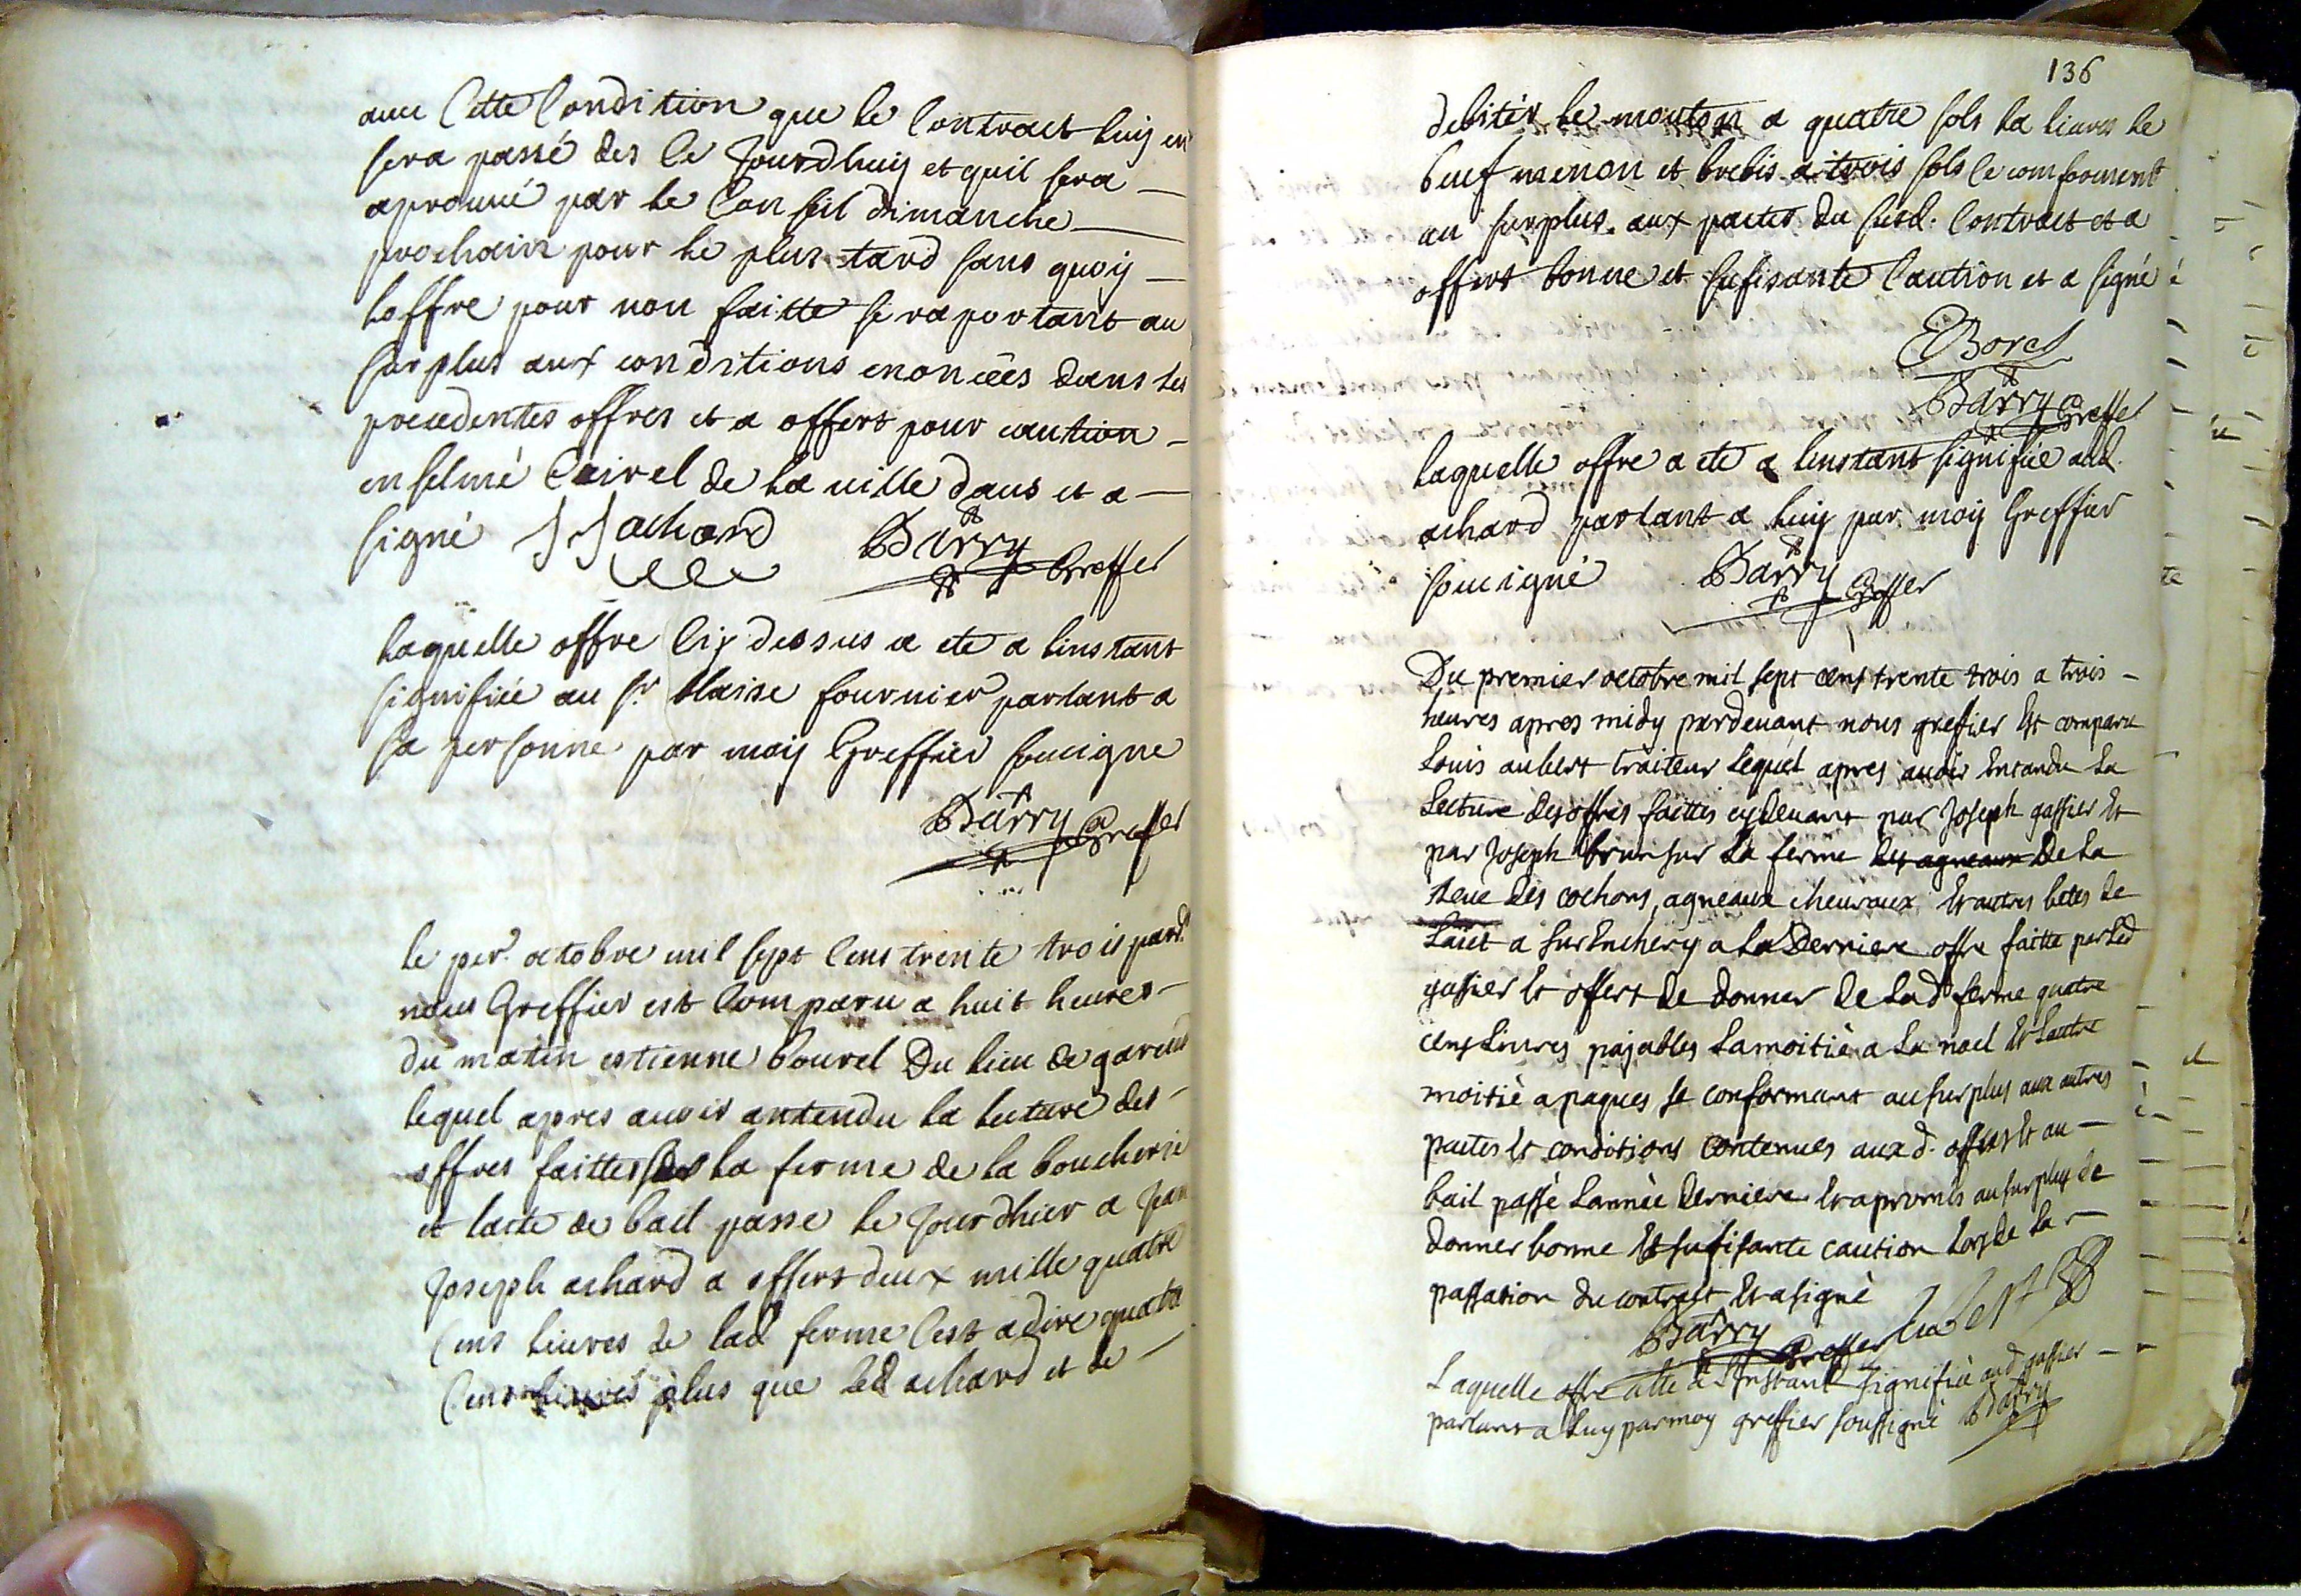 auec Cette Condition que le Contract luy en
sera passé des Ce Jourdhuy et quil sera
aprouué par le Conseil dimanche
prochain pour le plus tard sans quoy
loffre pour non faitte se raportant au
surplus aux conditions enoncées dans les
precedentes offres et a offert pour caution
enselmé Cairel de la uille daus et a
signé JJ achard Barry Greffier
laquelle offre Cy dessus a ete a linstant
signifiée au sr. blaise fournier parlant a
sa personne par moy Greffier soucigne
Barry Greffier
le per. octobre mil sept Cens trente trois pard.
nous Greffier est Comparu a huit heures
du matin estienne bourel Du lieu de gareus
lequel apres auoir antendu la lecture des
offres faittes sur la ferme de la boucherie
et lacte de bail passe le Jourdhier a Jean
Joseph achard a offert deux mille quatre
Cens liures de lad ferme Cest a dire quatre
Cens liures plus que led achard et de
136
debiter le mouton a quatre sols la liures le
beuf menon et brebis a trois sols se comforment
au surplus aux pactes du susd. Contract et a
offert bonne et sufisante Caution et a signé
EBorel
Barry Greffier
laquelle offre a ete a linstant signifiée aud.
achard parlant a luy par moy Greffier
soucigné Barry Greffier
Du premier octobre mil sept cens trente trois a trois
heures apres midy pardeuant nous greffier Et comparu
Louis aubert traiteur Lequel apres auoir Entandu La
Lecture des offres faittes cydeuant par Joseph gassier Et
par Joseph brun sur La ferme des agneaux De La
Reue des cochons, agneaux cheuraux Et autres betes de
Lait a surEnchery a La Derniere offre faitte par Led
gassier Et offert de donner de Lad ferme quatre
cens Liures pajables La moitié a La noel Et Lautre
moitié a paques se conformant au surplus aux autres
pactes Et conditions contenues aux d. offres Et au
bail passé Lannée derniere Et a promis au surplus de
donner bonne Et sufisante caution Lors de La
passation du contract Et a signé
Barry Greffier aubert
Laquelle offre a ette a LInstant signifiée aud gassier
parlant a Luy par moy greffier soussigné Barry